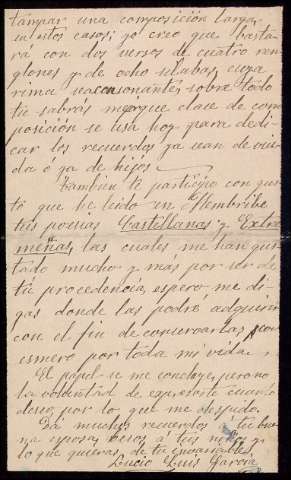 tampar una composición larga,
en estos casos; yo creo que basta-
rá con dos versos de cuatro ren-
glones y de ocho sílabas cuya
rima sea consonante; sobre todo
tú sabrás mejor que clase de com-
posición se usa hoy para dedi-
car los recuerdos ya sean de viu-
da ó ya de hijos.
También te participo con gus-
to que he leido en
tus poesías Castellanas y Extre-
meñas, las cuales me han gus-
tado mucho y más por ser de
tu procedencia, espero me di-
gas donde las podré adquirir
con el fin de conservarlas con
esmero por toda mi vida.
El papel se me concluye, pero no
la voluntad de expresarte cuanto
deseo, por lo que me despido.
Da muchos recuerdos á tu bue-
na esposa, besos á tus niños y
lo que quieras de tu
Lucio Luis García